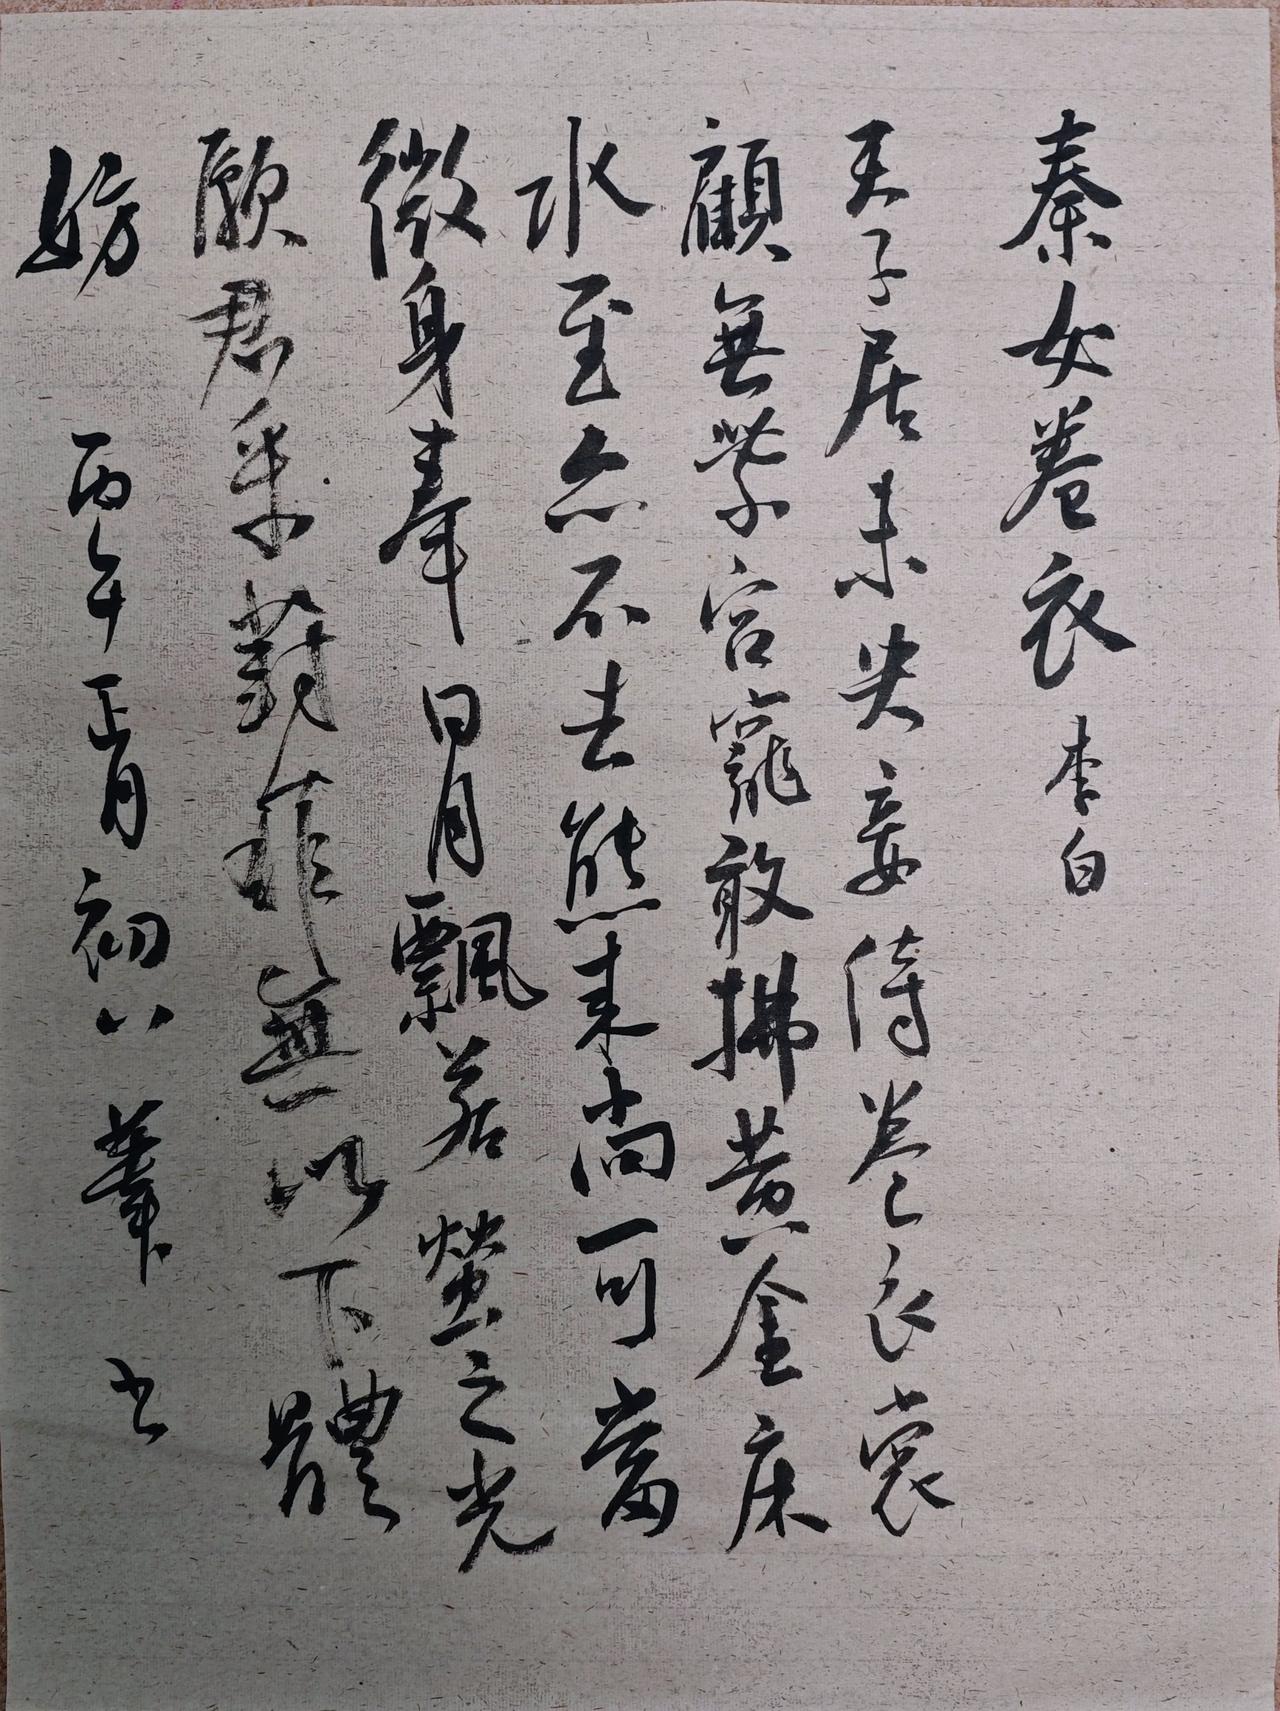 秦女卷衣 李白
天子居未央妾侍卷衣裳
顧無紫宮寵敢拂黃金床
水至亦不去熊来尚可當
微身奉日月飄若螢之光
願君采葑菲無以下體
妨 丙午正月初八 肇书